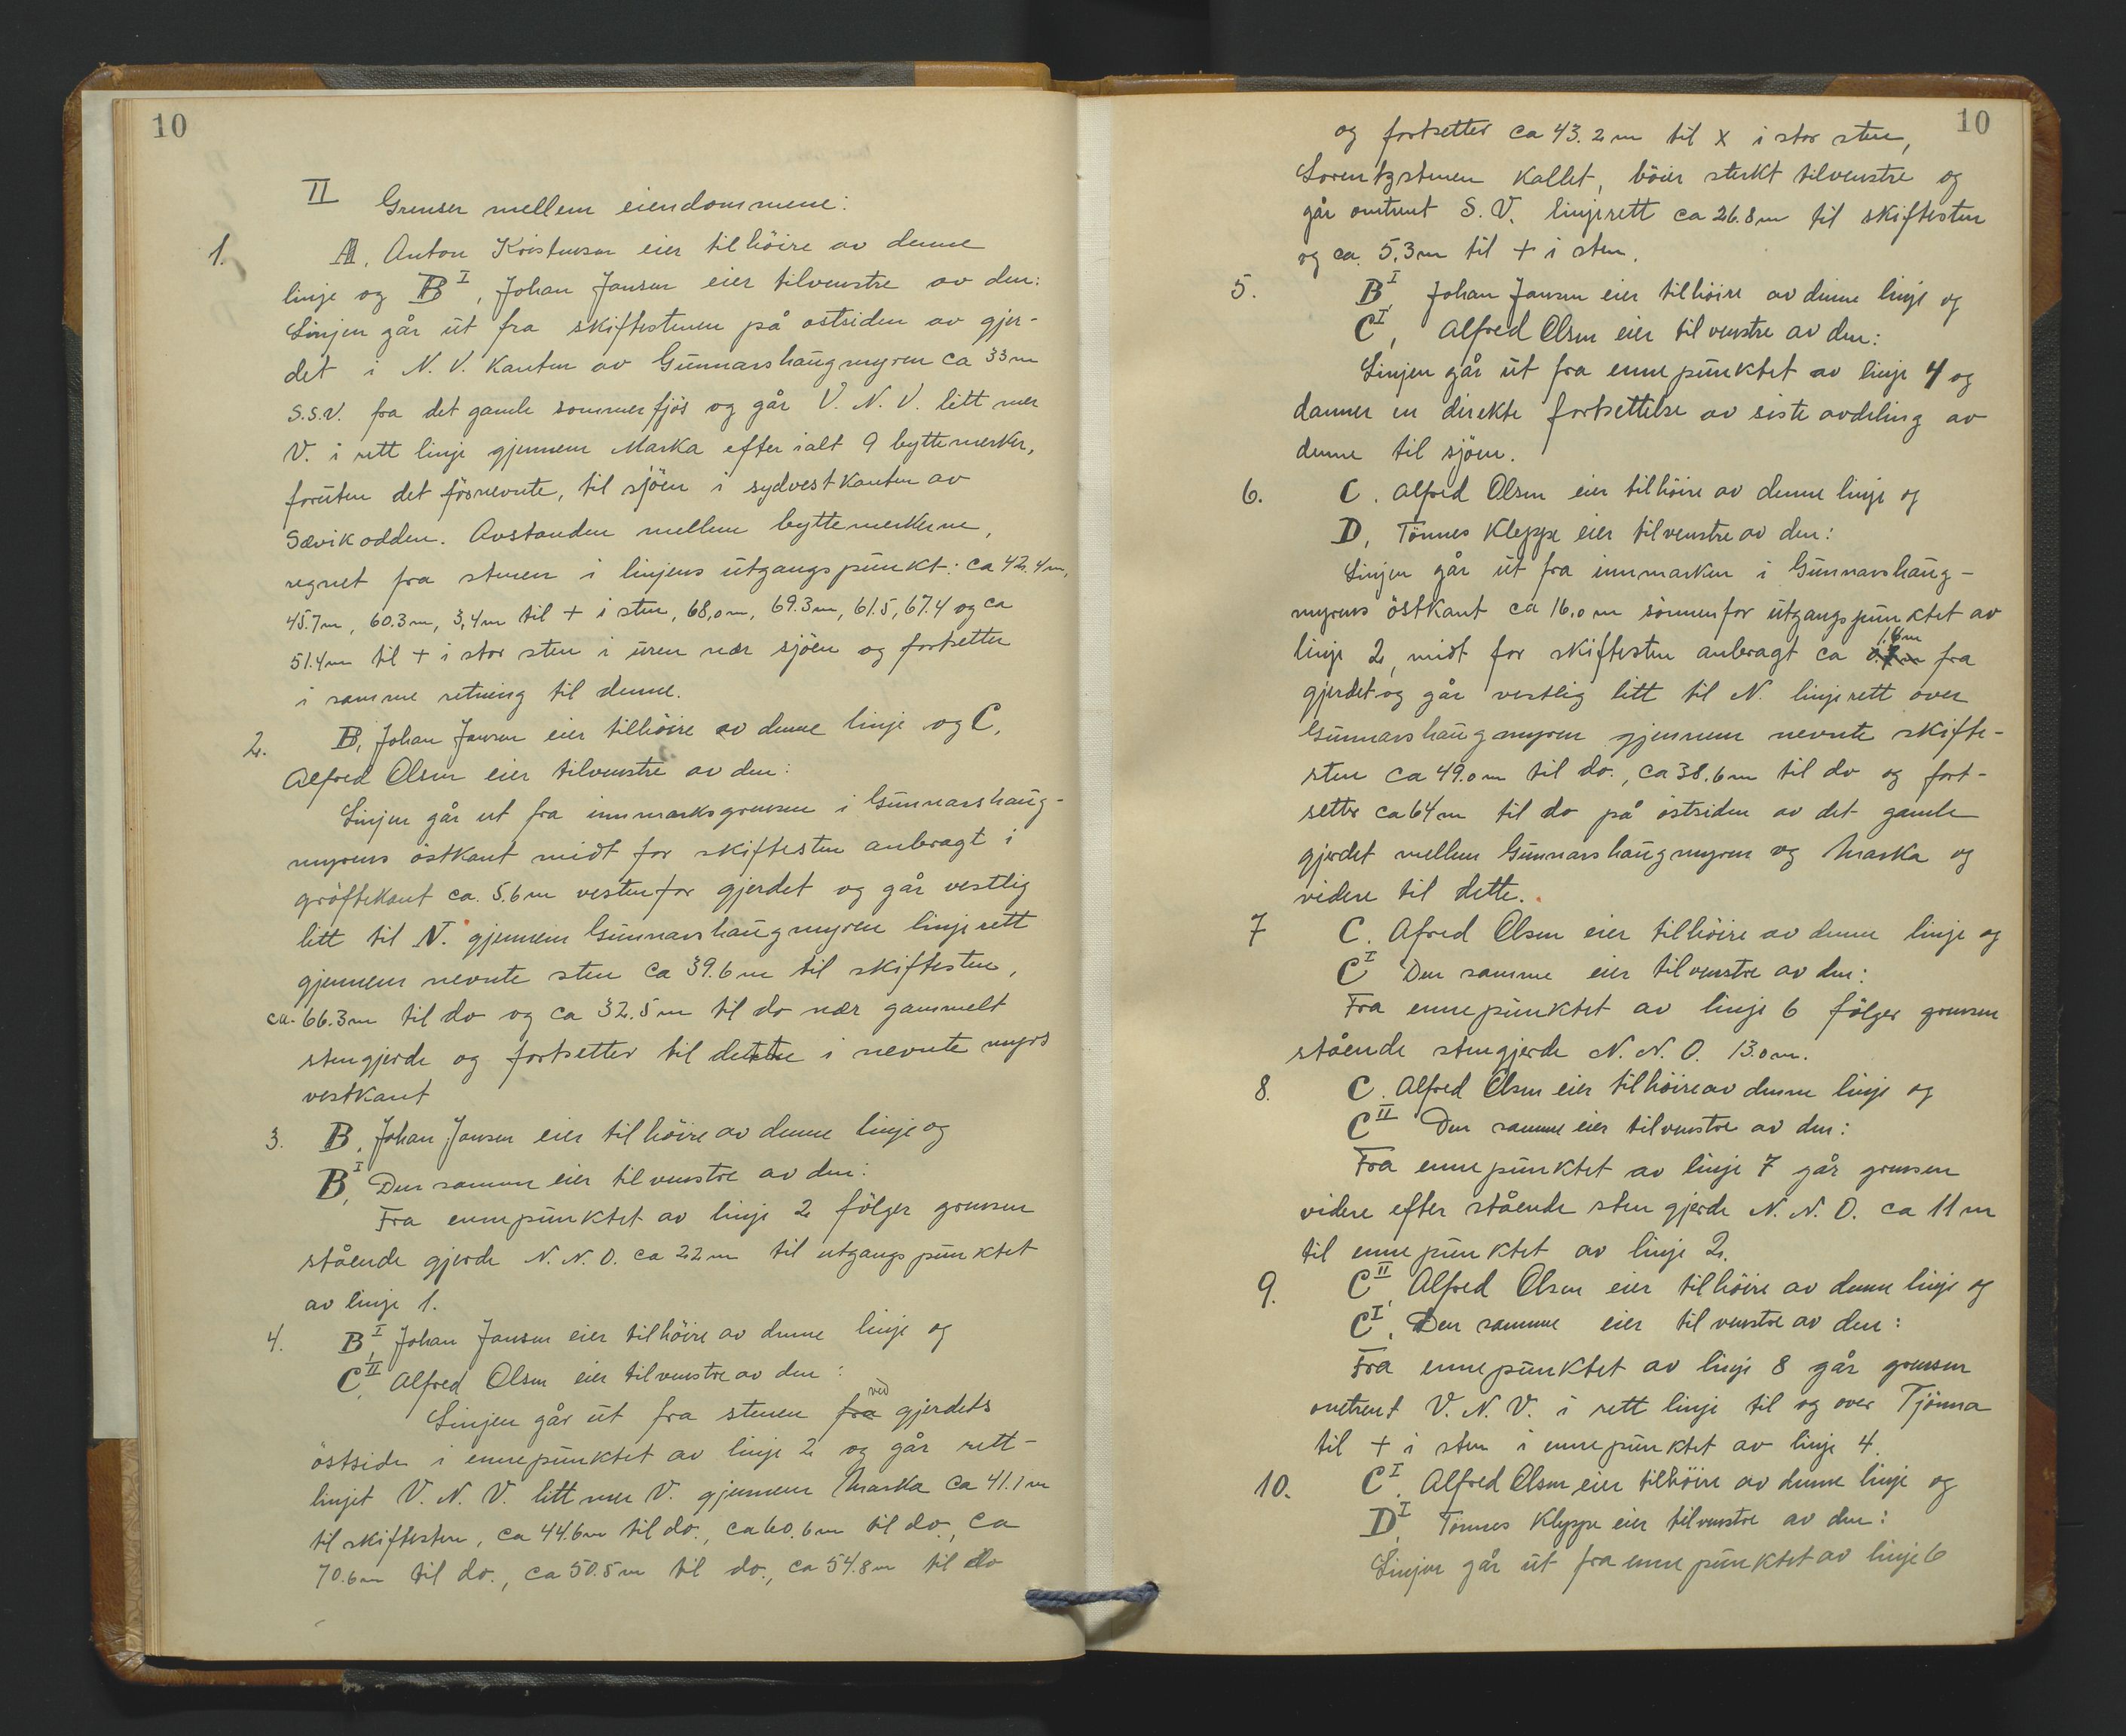 10
II Grenser mellem eiendommene:
1. A, Anton Kristensen eier tilhöire av denne
linje og B I, Johan Jansen eier tilvenstre av den:
Linjen går ut fra skiftestenen på ostsiden av gjer-
det i N. V. Kanten av Gunnarshaugmyren ca 33 m
S.S.V. fra det gamle sommerfjös og går V. N. V. litt mer
V. i rett linje gjennem Marka efter ialt 9 byttemerker,
foruten det försnevnte, til sjöen i sydvestkanten av
Sævikodden. Avstanden mellem byttemerkerne,
regnet fra stenen i linjens utgangspunkt: ca 42.4 m,
45.7 m, 60.3 m, 3,4 m til + i sten, 68,0 m, 69.3 m, 61.5, 67.4 og ca
51.4 m til + i stor sten i uren nær sjöen og fortsetter
i samme retning til denne.
2. B, Johan Jansen eier tilhöire av denne linje og C,
Alfred Olsen eier tilvenstre av den:
Linjen går ut fra innmarksgrensen i Gunnarshaug-
myrens östkant midt for skiftesten anbragt i
gröftekant ca. 5.6 m vestenfor gjerdet og går vestlig
litt til N. gjennem Gunnarshaugmyren linjerett
gjennem nevnte sten ca 39.6 m til skiftesten,
ca. 66.3 m til do og ca 32.5 m til do nær gammelt
stengjerde og fortsetter til dette i nevnte myrs
vestkant
3. B, Johan Jansen eier tilhöire av denne linje og
B I, Den samme eier tilvenstre av den:
Fra ennepunktet av linje 2 fölger grensen
stående gjerde N. N. O. ca 22 m til utgangspunktet
av linje 1.
4. B I, Johan Jansen eier tilhöire av denne linje og
C II, Alfred Olsen eier tilvenstre av den:
Linjen går ut fra stenen fra ved gjerdets
östside i ennepunktet av linje 2 og går rett-
linjet V. N. V. litt mer V. gjennem Marka ca 41.1 m
til skiftesten, ca 44.6 m til do., ca 60.6 m til do, ca
70.6 m til do., ca 50.5 m til do., ca 54.8 m til do
10
og fortsetter ca 43.2 m til x i stor sten,
Lorentzstenen Kallet, böier sterkt tilvenstre og
går omtrent S. V. linjerett ca 26.8 m til skiftesten
og ca. 5,3 m til + i sten.
5. B I, Johan Jansen eier tilhöire av denne linje og
C I, Alfred Olsen eier tilvenstre av den:
Linjen går ut fra ennepunktet av linje 4 og
danner en direkte fortsettelse av siste avdeling av
denne til sjöen.
6. C. Alfred Olsen eier tilhöire av denne linje og
D, Tönnes Kleppe eier tilvenstre av den:
Linjen går ut fra innmarken i Gunnarshaug-
myrens östkant ca 16.0 m sönnenfor utgangspunktet av
linje 2, midt for skiftesten anbragt ca 1.6 m fra
gjerdet og går vestlig litt til N. linjerett over
Gunnarshaugmyren gjennem nevnte skifte-
sten ca 49.0 m til do., ca 38.6 m til do og fort-
setter ca 64 m til do på östsiden av det gamle
gjerdet mellem Gunnarshaugmyren og Marka og
videre til dette.
7 C. Afred Olsen eier tilhöire av denne linje og
C I Den samme eier tilvenstre av den:
Fra ennepunktet av linje 6 fölger grensen
stående stengjerde N. N. O. 13.0 m.
8. C. Alfred Olsen eier tilhöire av denne linje og
C II Den samme eier tilvenstre av den:
Fra ennepunktet av linje 7 går grensen
videre efter stående stengjerde N. N. O. ca 11 m
til ennepunktet av linje 2.
9. C II, Alfred Olsen eier tilhöire av denne linje og
C I, Den samme eier tilvenstre av den:
Fra ennepunktet av linje 8 går grensen
omtrent V. N. V. i rett linje til og over Tjönna
til + i sten i ennepunktet av linje 4.
10. C I, Alfred Olsen eier tilhöire av denne linje og
D I, Tönnes Kleppe eier tilvenstre av den:
Linjen går ut fra ennepunktet av linje 6